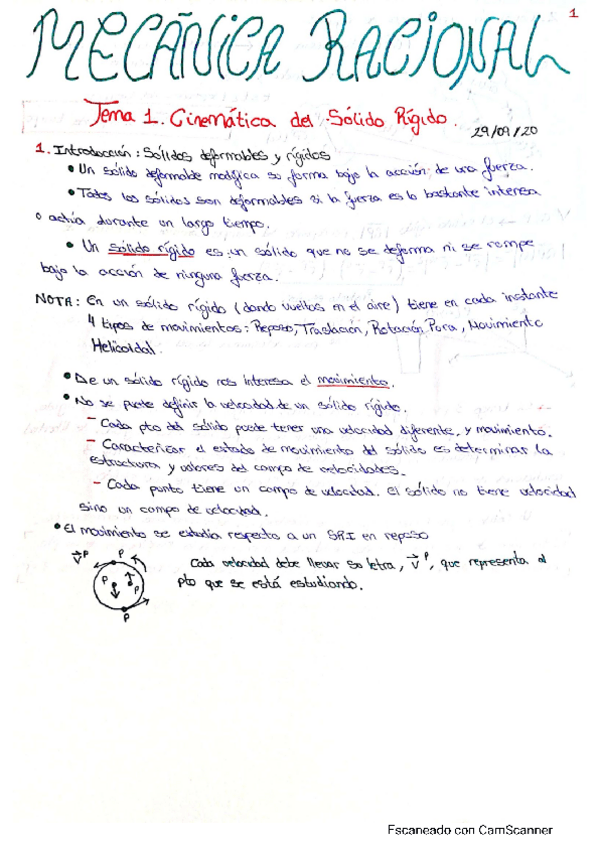 1
MECÁNICA RACIONAL
Tema 1. Cinemática del Sólido Rígido.
29/09/20
1. Introducción: Sólidos deformables y rígidos
• Un sólido deformable modifica su forma bajo la acción de una fuerza.
• Todos los sólidos son deformables si la fuerza es lo bastante intensa
o actúa durante un largo tiempo.
• Un sólido rígido es un sólido que no se deforma ni se rompe
bajo la acción de ninguna fuerza.
NOTA: En un sólido rígido (dando vueltas en el aire) tiene en cada instante
4 tipos de movimientos: Reposo, Traslación, Rotación Pura, Movimiento
Helicoidal.
• De un sólido rígido nos interesa el movimiento.
• No se puede definir la velocidad de un sólido rígido.
- Cada pto del sólido puede tener una velocidad diferente, y movimiento.
- Caracterizar el estado de movimiento del sólido es determinar la
estructura y valores del campo de velocidades.
- Cada punto tiene un campo de velocidad. El sólido no tiene velocidad
sino un campo de velocidad.
• El movimiento se estudia respecto a un SRI en reposo
v⃗ᴾ P
P P
P
Cada velocidad debe llevar su letra, v⃗ᴾ, que representa al
pto que se está estudiando.
Escaneado con CamScanner